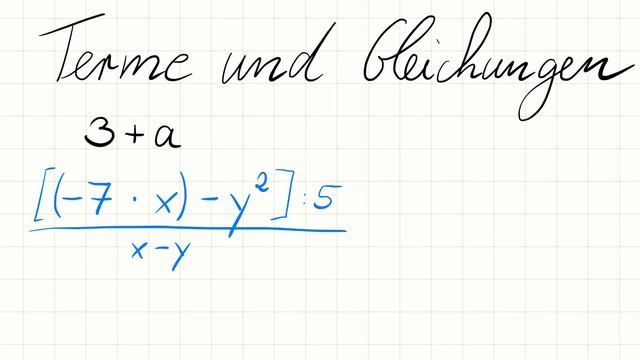 Terme und Gleichungen
3 + a
[(-7 · x) - y²] : 5
x - y